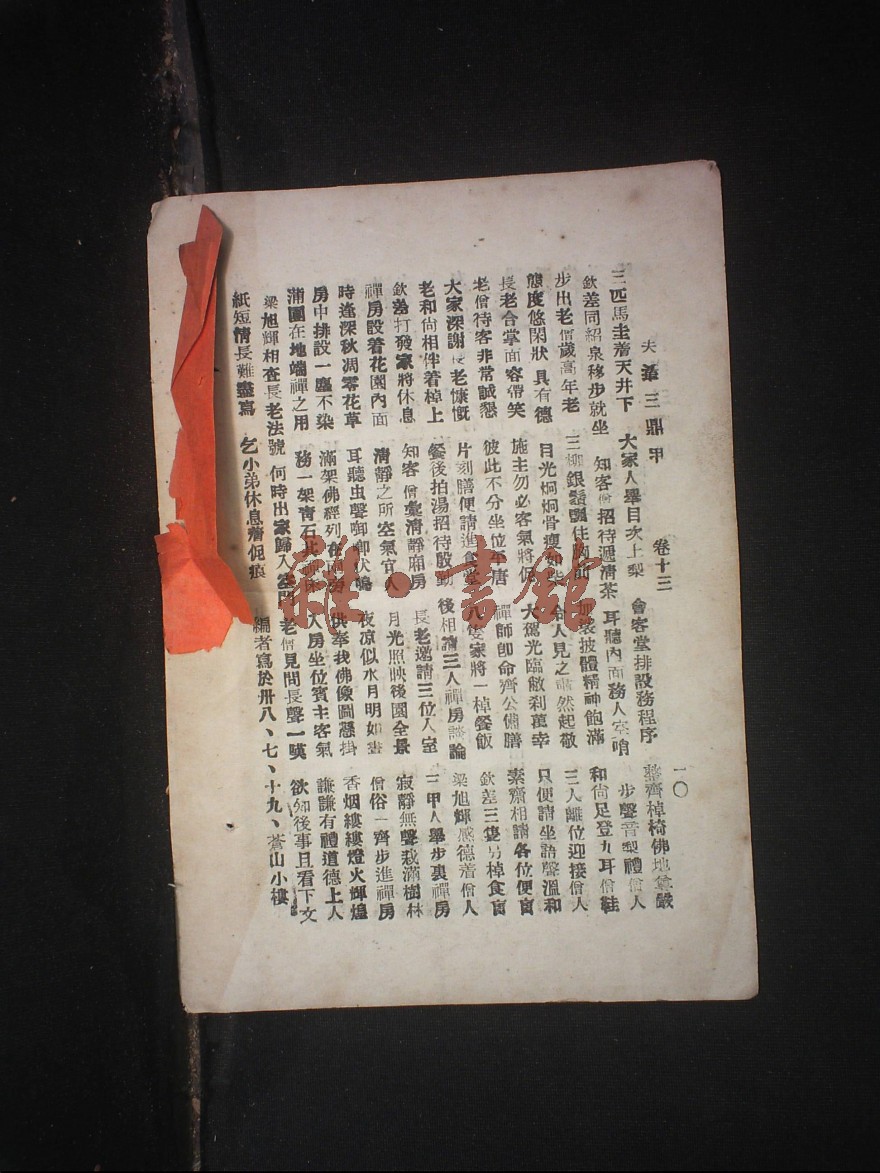 夫 三鼎甲 卷十三 一〇
三匹馬圭着天井下 大家人舉目次上梨 會客堂排設務程序 整齊棹椅佛地莊嚴
欽差同紹泉移步就坐 知客僧招待遞清茶 耳聽內面務人室哨 步聲音梨禮僧人
步出老僧歲高年老 三柳銀鬚飄住胸前 加裟披體精神飽滿 和尙足登九耳僧鞋
態度悠閑狀具有德 目光炯炯骨瘦如柴 令人見之肅然起敬 三人離位迎接僧人
長老合掌面容帶笑 施主勿必客氣將伬 大駕光臨敝刹萬幸 只便請坐語聲溫和
老僧待客非常誠懇 彼此不分坐位年唐 禪師卽命齊公備膳 素齋相請各位便窗
大家深謝長老慷慨 片刻膳便請進食堂 八隻家將一棹餐飯 欽差三隻另棹食窗
老和尙相伴着棹上 餐後拍湯招待殷勤 後相請三人禪房談論 梁旭輝感德着僧人
欽差打發家將休息 知客僧臺清靜廂房 長老邀請三位入室 三甲人舉步裏禪房
禪房設着花園內面 清靜之所空氣宜人 月光照映後園全景 寂靜無聲栽滿樹林
時逢深秋凋零花草 耳聽虫聲唧唧伏鳴 夜凉似水月明如晝 僧俗一齊步進禪房
房中排設一塵不染 滿架佛經列在兩旁 供奉我佛像圖懸掛 香烟縷縷燈火輝煌
蒲團在地端禪之用 務一架靑石 入房坐位賓主客氣 謙謙有禮道德上人
梁旭輝相查長老法號 何時出家歸入空門 老僧見問長聲一嘆 欲知後事且看下文
紙短情長難盡寫 乞小弟休息着伬痕 編者寫於卅八、七、十九、蒼山小樓
雜·書館